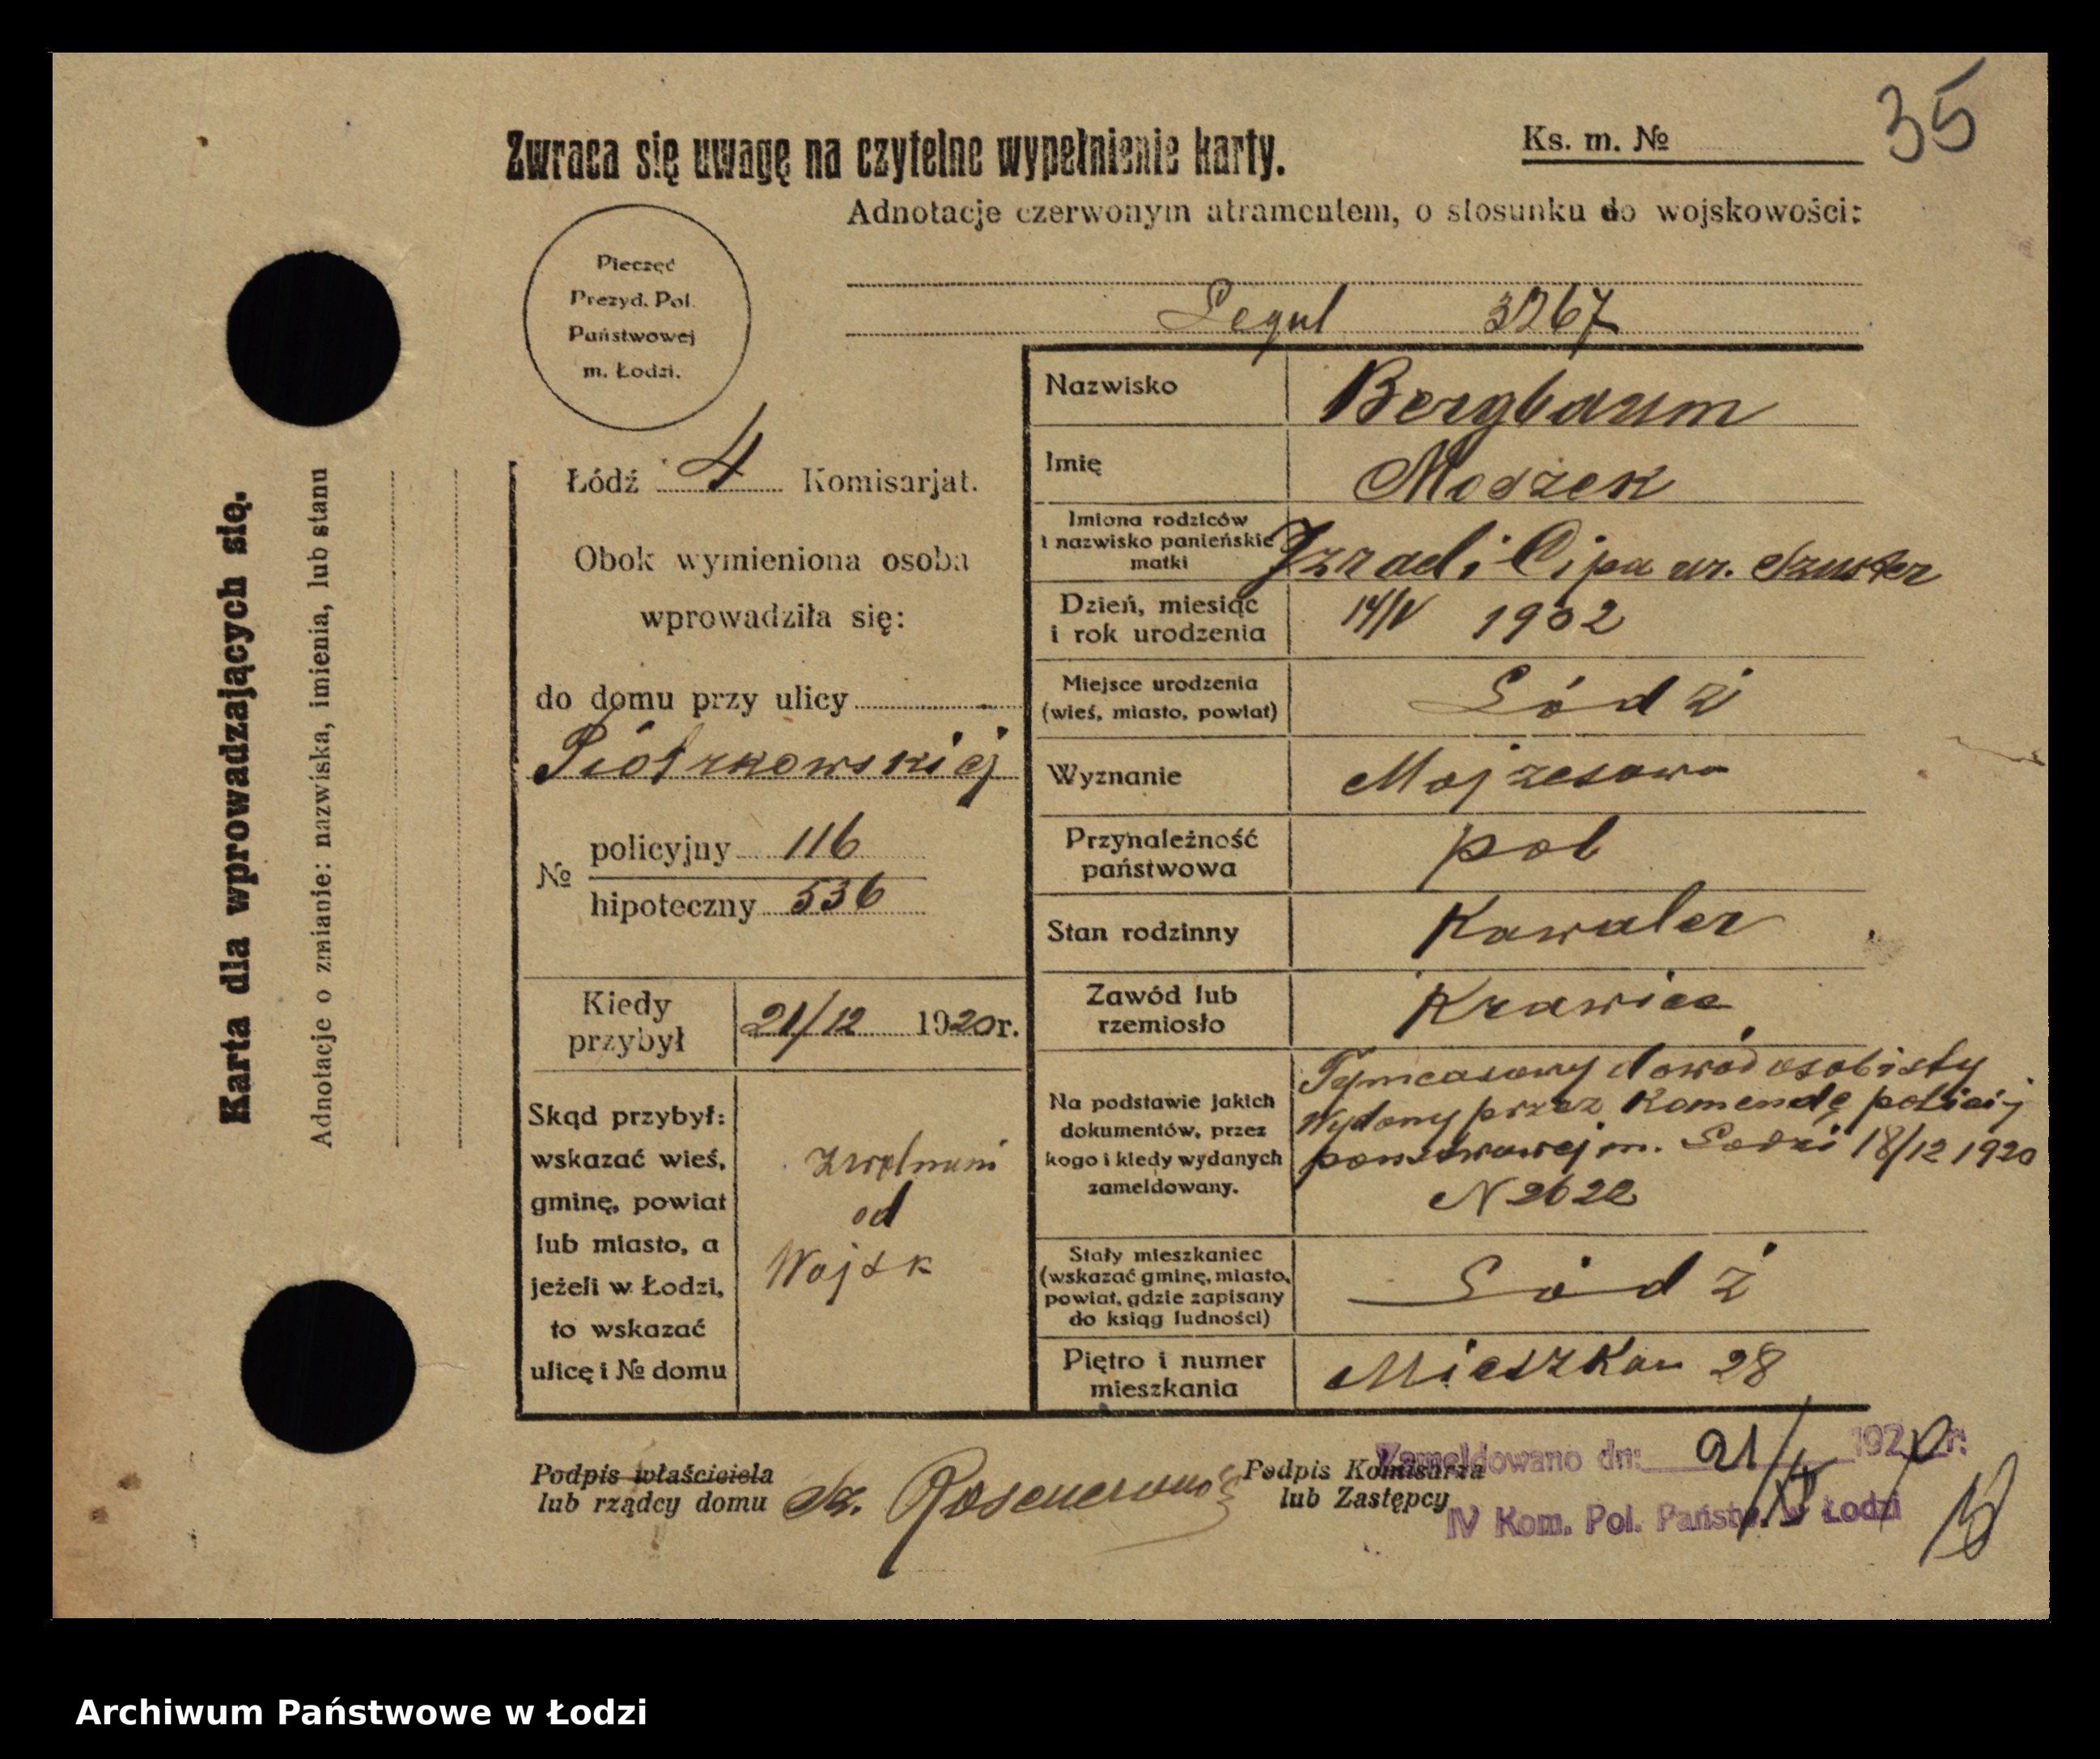 35
Zwraca się uwagę na czytelne wypełnienie karty.
Ks. m. №
Adnotacje czerwonym atramentem, o stosunku do wojskowości:
3267
Pieczęć
Prezyd. Pol.
Państwowej
m. Łodzi.
Karta dla wprowadzających się.
Adnotacje o zmianie: nazwiska, imienia, lub stanu
Łódź 4 Komisarjat.
Obok wymieniona osoba
wprowadziła się:
do domu przy ulicy
Piotrkowskiej
№ policyjny 116
hipoteczny 536
Kiedy przybył 21/12 1920 r.
Skąd przybył:
wskazać wieś,
gminę, powiat
lub miasto, a
jeżeli w Łodzi,
to wskazać
ulicę i № domu
od
Wojsk
Nazwisko Bergbaum
Imię Moszek
Imiona rodziców
i nazwisko panieńskie
matki
Izrael i Cipa ur. Szuster
Dzień, miesiąc
i rok urodzenia
14/V 1902
Miejsce urodzenia
(wieś, miasto, powiat)
Łódź
Wyznanie Mojżesowa
Przynależność
państwowa
pol
Stan rodzinny Kawaler
Zawód lub
rzemiosło
Krawiec
Na podstawie jakich
dokumentów, przez
kogo i kiedy wydanych
zameldowany.
Tymcasowy dowód osobisty
wydany przez Komendę policij
panstwowej m. Łodzi 18/12 1920
N 2622
Stały mieszkaniec
(wskazać gminę, miasto,
powiat, gdzie zapisany
do ksiąg ludności)
Łódź
Piętro i numer
mieszkania
Mieszkan 28
Podpis właściciela
lub rządcy domu
Sz.
Podpis Komisarza
lub Zastępcy
Zameldowano dn: 21/XII 1920 r.
IV Kom. Pol. Państw. w Łodzi
Archiwum Państwowe w Łodzi